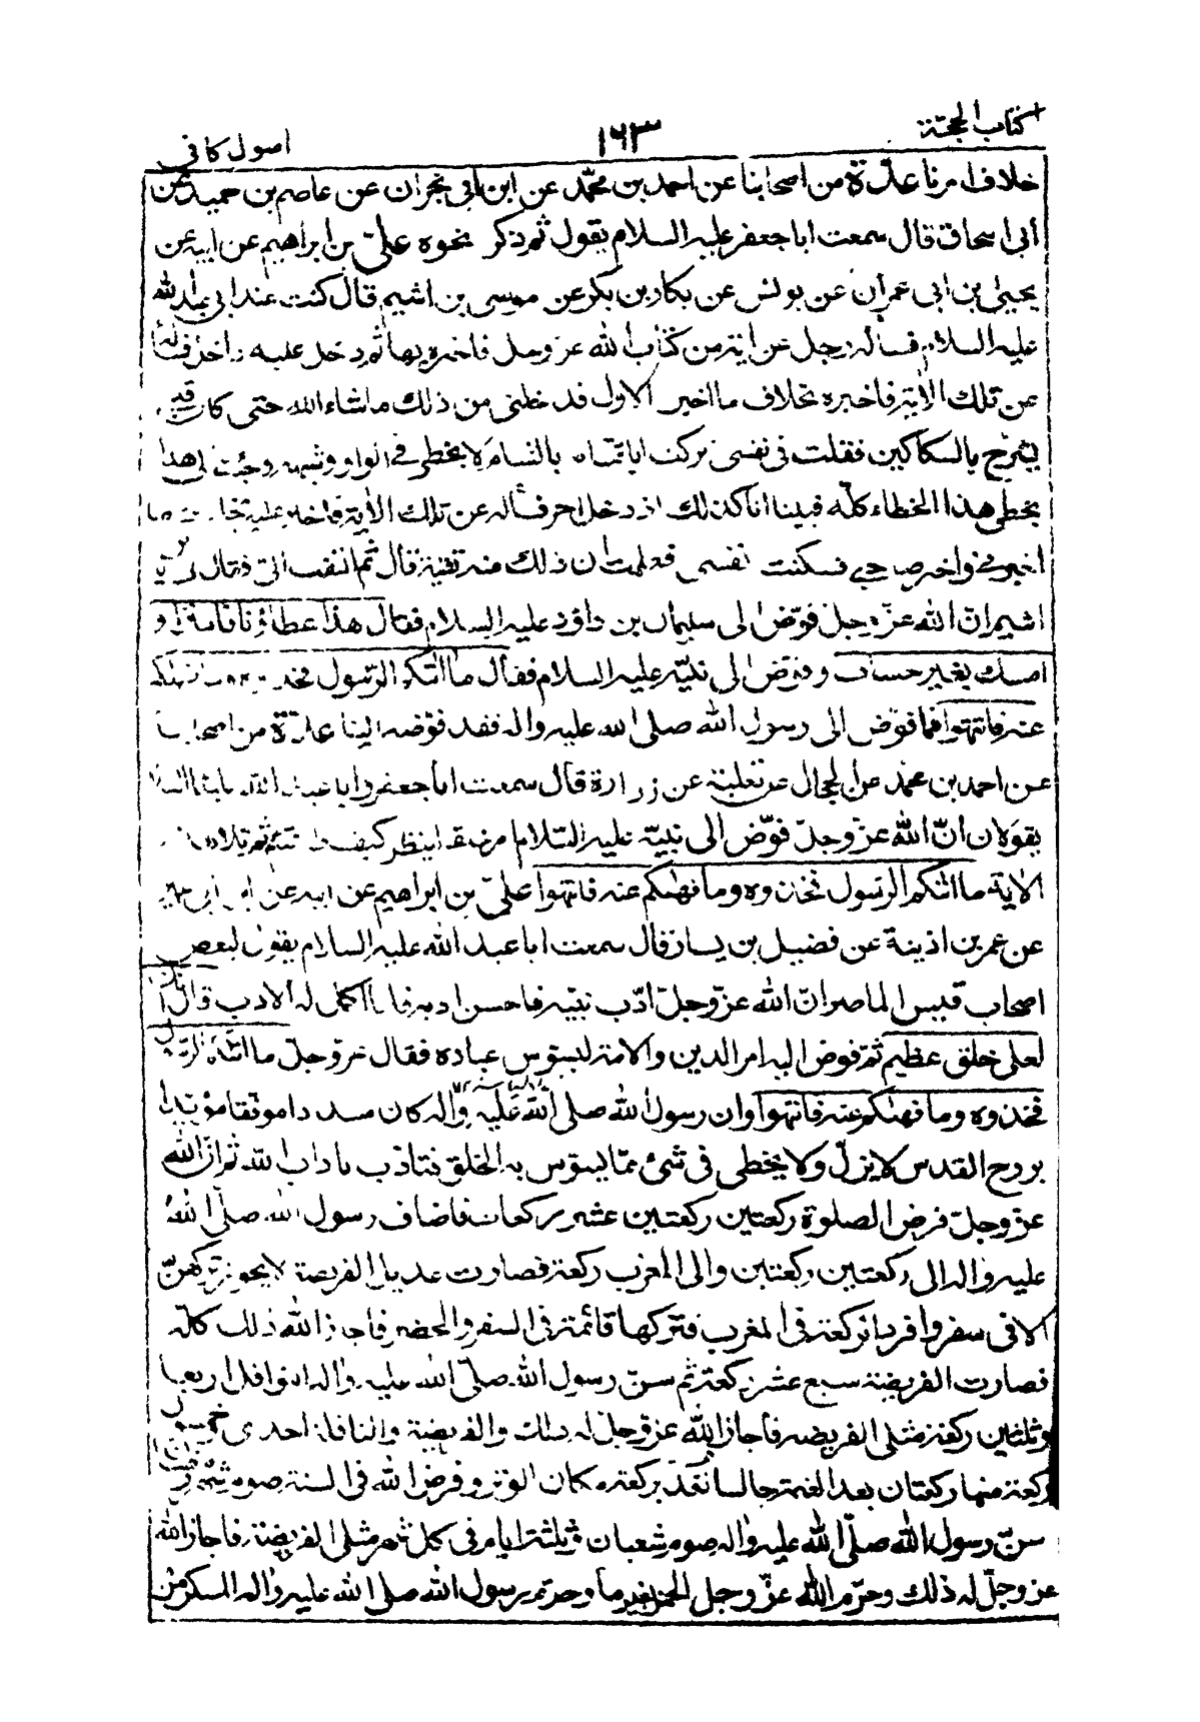 كتاب الحجة
١٦٣
اصول كافى
خلاف امرنا عدّة من اصحابنا عن احمد بن محمّد عن ابن ابى نجران عن عاصم بن حميد عن
ابى اسحاق قال سمعت ابا جعفر عليه السلام يقول ثم ذكر نحوه علىّ بن ابراهيم عن ابيه عن
يحيى بن ابى عمران عن يونس عن بكار بن بكر عن موسى بن اشيم قال كنت عند ابى عبد الله
عليه السلام فسأله رجل عن اية من كتاب الله عز وجل فاخبره بها ثم دخل عليه داخل فسأله
عن تلك الأية فاخبره بخلاف ما اخبر الاول فدخلنى من ذلك ما شاء الله حتى كان قلبى
يشرّح بالسكاكين فقلت فى نفسى تركت ابا قتاده بالشام لا يخطى فى الواو وشبهه وجئت الى هذا
يخطى هذا الخطاء كلّه فبينا انا كذلك اذ دخل اخر فسأله عن تلك الأية فاخبره بخلاف ما
اخبرنى واخبر صاحبى فسكنت نفسى فعلمت ان ذلك منه تقية قال ثم التفت الىّ فقال لى يا بن
اشيم ان الله عزّ وجل فوّض الى سليمان بن داؤد عليه السلام فقال هذا عطاؤنا فامنن او
امسك بغير حساب وفوّض الى نبيّه عليه السلام فقال ما اتٰكم الرّسول فخذوه وما نهٰكم
عنه فانتهوا فما فوّض الى رسول الله صلى الله عليه واله فقد فوّضه الينا عدّة من اصحابنا
عن احمد بن محمد عن الحجال عن ثعلبة عن زرارة قال سمعت ابا جعفر وابا عبد الله عليهما السلام
يقولان انّ الله عزّ وجلّ فوّض الى نبيّه عليه السّلام امر خلقه لينظر كيف طاعتهم ثم تلا هذه
الأية ما اتٰكم الرّسول فخذوه وما نهٰكم عنه فانتهوا علىّ بن ابراهيم عن ابيه عن ابن ابى عمير
عن عمر بن اذينة عن فضيل بن يسار قال سمعت ابا عبد الله عليه السلام يقول لبعض
اصحاب قيس الماصر انّ الله عزّ وجلّ ادّب نبيّه فاحسن ادبه فلما اكمل له الادب قال انك
لعلى خلق عظيم ثمّ فوض اليه امر الدين والامة ليسوس عباده فقال عز وجلّ ما اتٰكم الرّسول
فخذوه وما نهٰكم عنه فانتهوا وان رسول الله صلى الله عليه واله كان مسددا موفقا مؤيّدا
بروح القدس لا يزلّ ولا يخطى فى شئ ممّا يسوس به الخلق فتادّب باداب الله ثم انّ الله
عزّ وجلّ فرض الصلوة ركعتين ركعتين عشر ركعات فاضاف رسول الله صلّى الله
عليه واله الى ركعتين ركعتين والى المغرب ركعة فصارت عديل الفريضة لا يجوز تركهنّ
الا فى سفر وافرد الركعة فى المغرب فتركها قائمة فى السفر والحضر فاجاز الله ذلك كلّه
فصارت الفريضة سبع عشرة ركعة ثم سنّ رسول الله صلّى الله عليه واله النوافل اربعا
وثلثين ركعة مثلى الفريضه فاجاز الله عزّ وجل له ذلك والفريضة والنافلة احدى وخمسون
ركعة منها ركعتان بعد العتمة جالسا تعدّ بركعة مكان الوتر وفرض الله فى السنة صوم شهر رمضان
سنّ رسول الله صلّى الله عليه واله صوم شعبان وثلثة ايام فى كل شهر مثلى الفريضة فاجاز الله
عز وجلّ له ذلك وحرّم الله عزّ وجل الخمر بعينها وحرّم رسول الله صلى الله عليه واله المسكر من